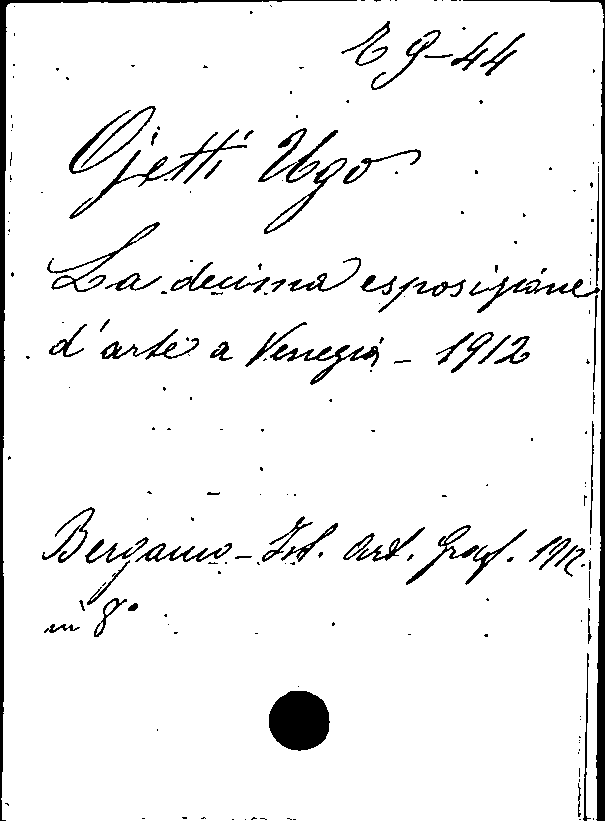 E 9-44
Ojetti Ugo
La decima esposizione
d'arte a Venezia - 1912
Bergamo - Ist. Art. Graf. 1912.
in 8°